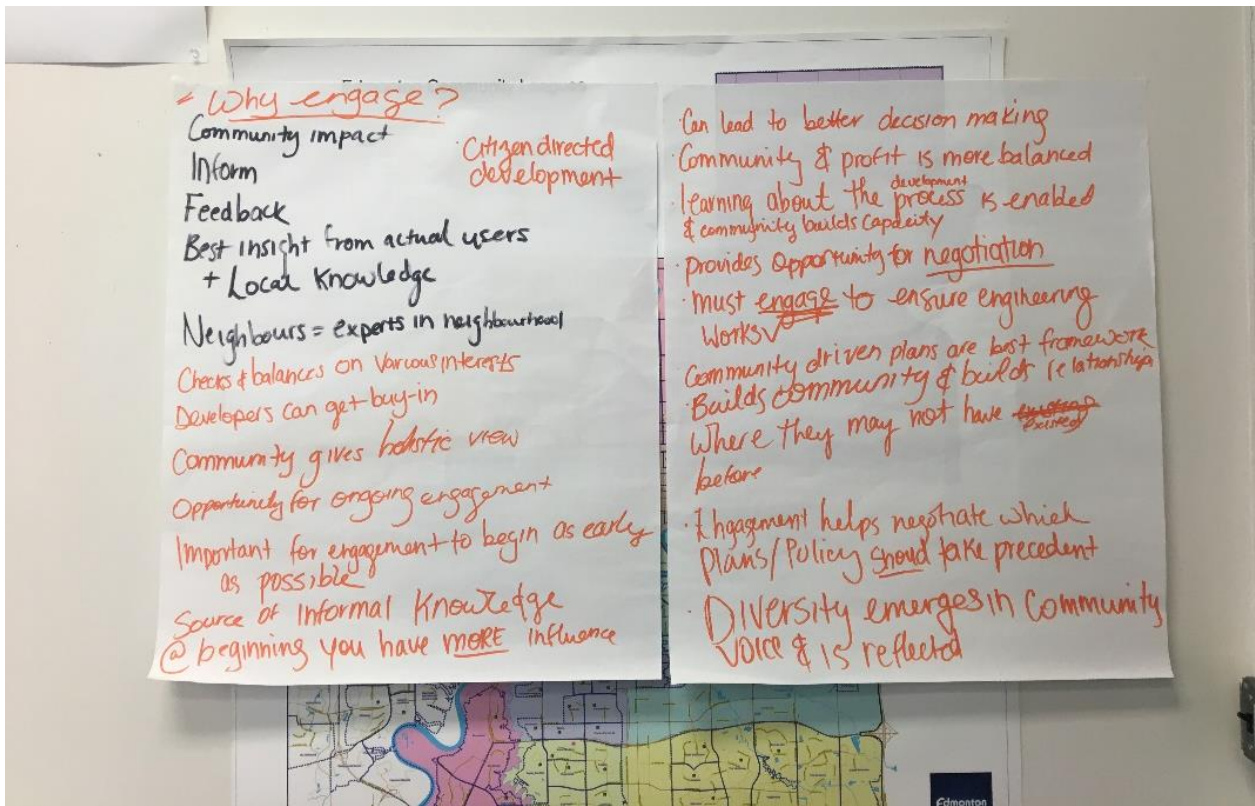 Edmonton Community Leagues
Why engage?
Community impact
Inform
Feedback
Best insight from actual users
+ Local Knowledge
Neighbours = experts in neighbourhood
Citizen directed
development
Checks & balances on various interests
Developers can get buy-in
Community gives holistic view
Opportunity for ongoing engagement
Important for engagement to begin as early
as possible
Source of informal Knowledge
@ beginning you have MORE influence
· Can lead to better decision making
· Community & profit is more balanced
· learning about the development process is enabled
& community builds capacity
· provides opportunity for negotiation
· must engage to ensure engineering
works
· Community driven plans are best framework
· Builds community & builds relationships
where they may not have existed
before
· Engagement helps negotiate which
plans/policy should take precedent
· Diversity emerges in community
voice & is reflected
Edmonton